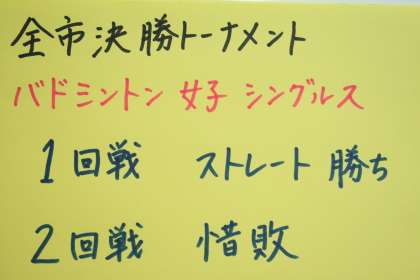 全市決勝トーナメント
バドミントン 女子 シングルス
1回戦 ストレート 勝ち
2回戦 惜敗